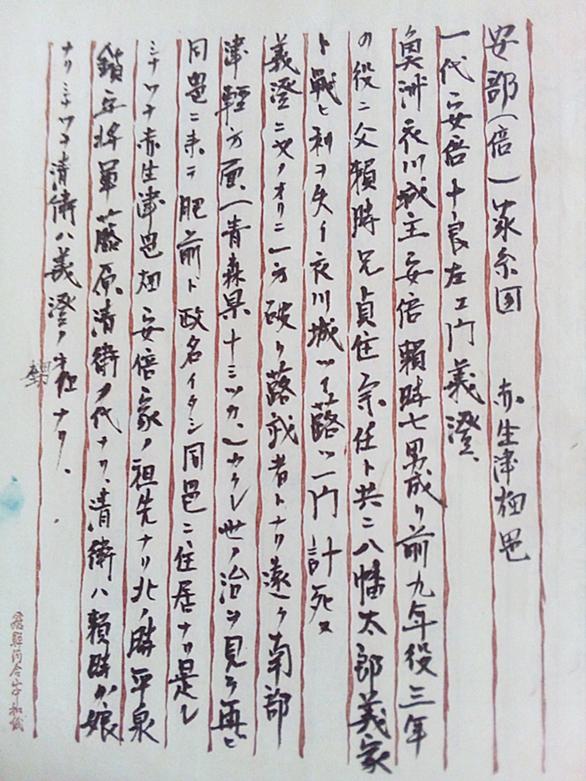 安部(倍)家系図 赤生津畑邑
一代 安倍十良左エ門義澄、
奥洲衣川城主安倍頼時七男成リ前九年役三年
の役ニ父頼時兄貞任宗任ト共ニ八幡太郎義家
ト戦ヒ利ヲ失イ衣川城ツイ落ツ一門討死ス
義澄ニヤノオリニ一方破リ落武者トナリ遠ク南部
津軽方面(青森県十ミツカ)カクレ世ノ治ヲ見テ再ヒ
同邑ニ来テ肥前ト改名イタシ同邑ニ住居ナリ是レ
ナリ赤生津邑畑安倍家ノ祖先ナリ北ノ時平泉
鎮守将軍藤原清衡ノ代ナリ、清衡ハ頼時が娘
ナリ 清衡ハ義澄ノ ナリ、